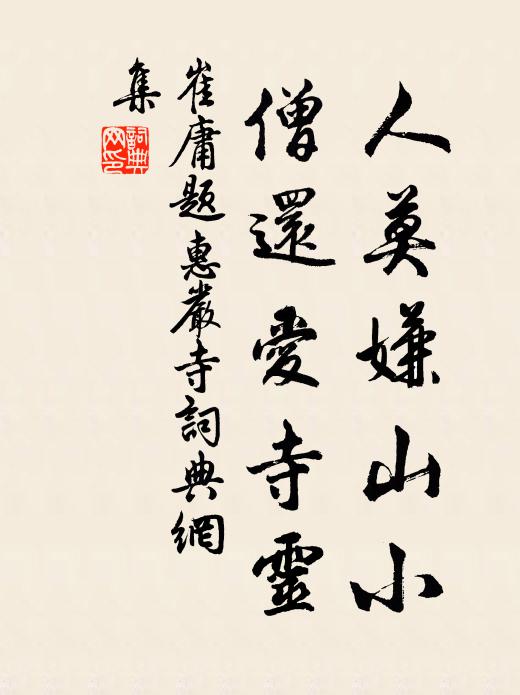 人莫嫌山小
僧還愛寺靈
崔庸題惠嚴寺詞典網
集
詞典網印